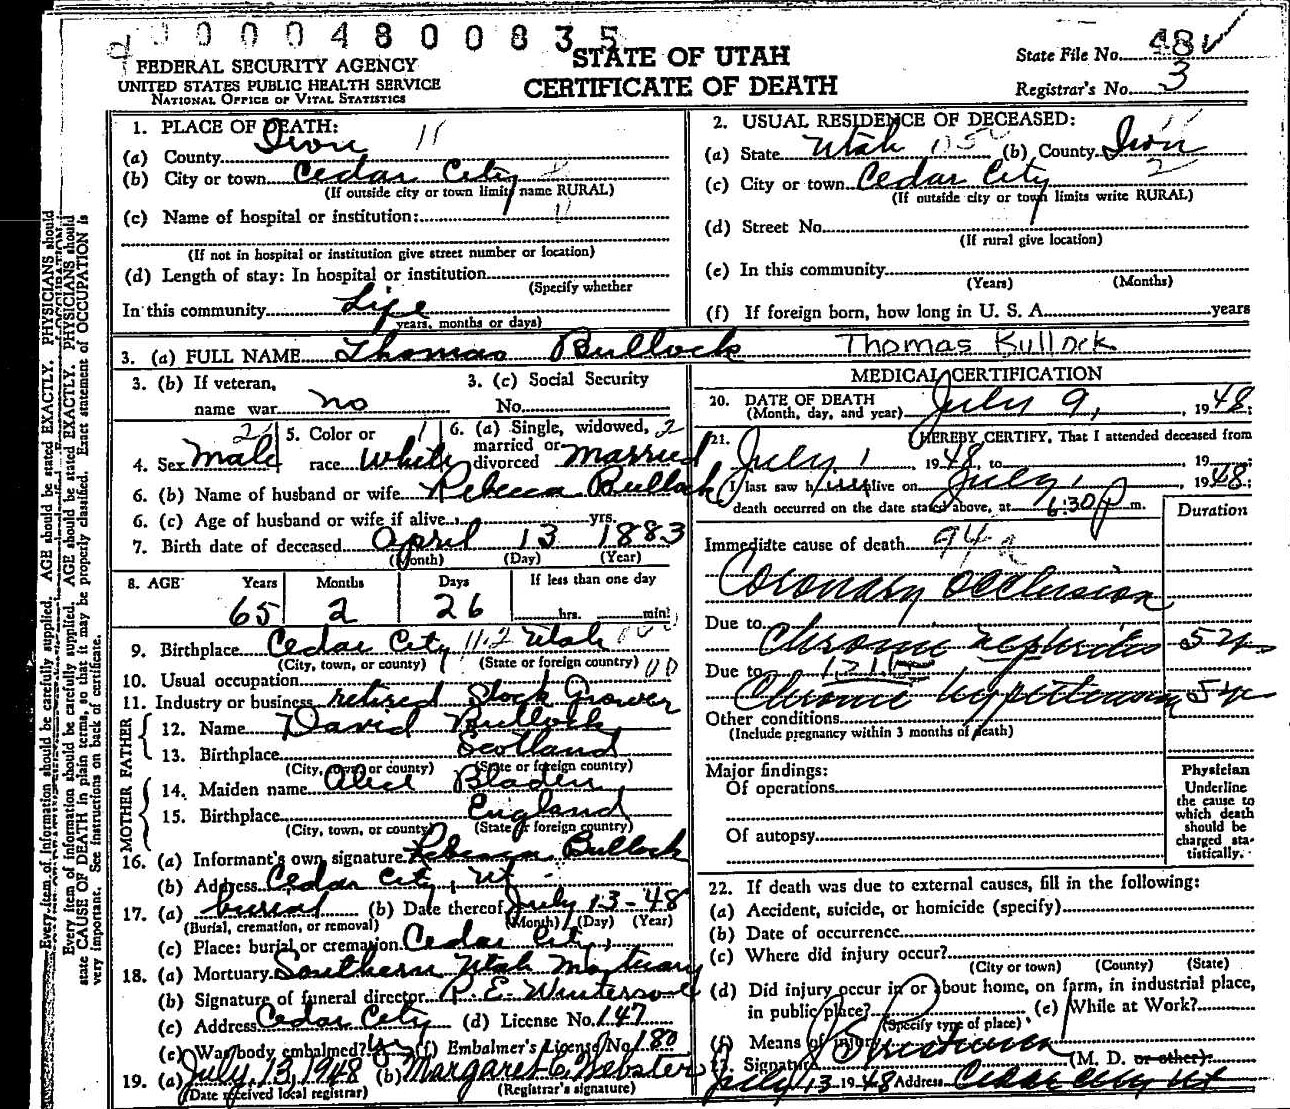 00004800835
STATE OF UTAH
CERTIFICATE OF DEATH
FEDERAL SECURITY AGENCY
UNITED STATES PUBLIC HEALTH SERVICE
NATIONAL OFFICE OF VITAL STATISTICS
State File No. 48
Registrar's No. 3
1. PLACE OF DEATH:
(a) County Iron 11
(b) City or town Cedar City
(If outside city or town limits name RURAL)
(c) Name of hospital or institution:
(If not in hospital or institution give street number or location)
(d) Length of stay: In hospital or institution
(Specify whether
In this community Life
years, months or days)
2. USUAL RESIDENCE OF DECEASED:
(a) State Utah (b) County Iron
(c) City or town Cedar City 2
(If outside city or town limits write RURAL)
(d) Street No.
(If rural give location)
(e) In this community
(Years) (Months)
(f) If foreign born, how long in U. S. A. years
3. (a) FULL NAME Thomas Bullock Thomas Bullock
3. (b) If veteran, name war no
3. (c) Social Security No.
4. Sex Male
5. Color or race White
6. (a) Single, widowed, married or divorced married
6. (b) Name of husband or wife Rebecca Bullock
6. (c) Age of husband or wife if alive yrs.
7. Birth date of deceased April 13 1883
(Month) (Day) (Year)
8. AGE Years Months Days If less than one day
65 2 26 hrs. min.
9. Birthplace Cedar City Utah
(City, town, or county) (State or foreign country)
10. Usual occupation
11. Industry or business retired Stock Grower
FATHER
12. Name David Bullock
13. Birthplace Scotland
(City, town or county) (State or foreign country)
MOTHER
14. Maiden name Alice Bladen
15. Birthplace England
(City, town, or county) (State or foreign country)
16. (a) Informant's own signature Rebecca Bullock
(b) Address Cedar City, Ut
17. (a) burial (b) Date thereof July 13-48
(Burial, cremation, or removal) (Month) (Day) (Year)
(c) Place: burial or cremation Cedar City,
18. (a) Mortuary Southern Utah Mortuary
(b) Signature of funeral director R. E. Winterrose
(c) Address Cedar City (d) License No. 147
(e) Was body embalmed? yes (f) Embalmer's License No. 180
19. (a) July, 13, 1948 (b) Margaret C. Webster
(Date received local registrar) (Registrar's signature)
MEDICAL CERTIFICATION
20. DATE OF DEATH
(Month, day, and year) July 9, 1948;
21. I HEREBY CERTIFY, That I attended deceased from
July 1, 1948, to 19
I last saw him alive on July 1, 1948;
death occurred on the date stated above, at 6:30 p m.
Duration
Immediate cause of death 94a
Coronary occlusion
Due to Chronic nephritis 5 yr
Due to
Chronic hypertension 5 yr
Other conditions
(Include pregnancy within 3 months of death)
Major findings:
Of operations
Of autopsy
Physician
Underline
the cause to
which death
should be
charged sta-
tistically.
22. If death was due to external causes, fill in the following:
(a) Accident, suicide, or homicide (specify)
(b) Date of occurrence
(c) Where did injury occur?
(City or town) (County) (State)
(d) Did injury occur in or about home, on farm, in industrial place,
in public place? (e) While at Work?
(Specify type of place)
(f) Means of injury
Signature (M. D. or other):
July 13 1948 Address Cedar City Ut
Every item of information should be carefully supplied. AGE should be stated EXACTLY. PHYSICIANS should
state CAUSE OF DEATH in plain terms, so that it may be properly classified. Exact statement of OCCUPATION is
very important. See instructions on back of certificate.